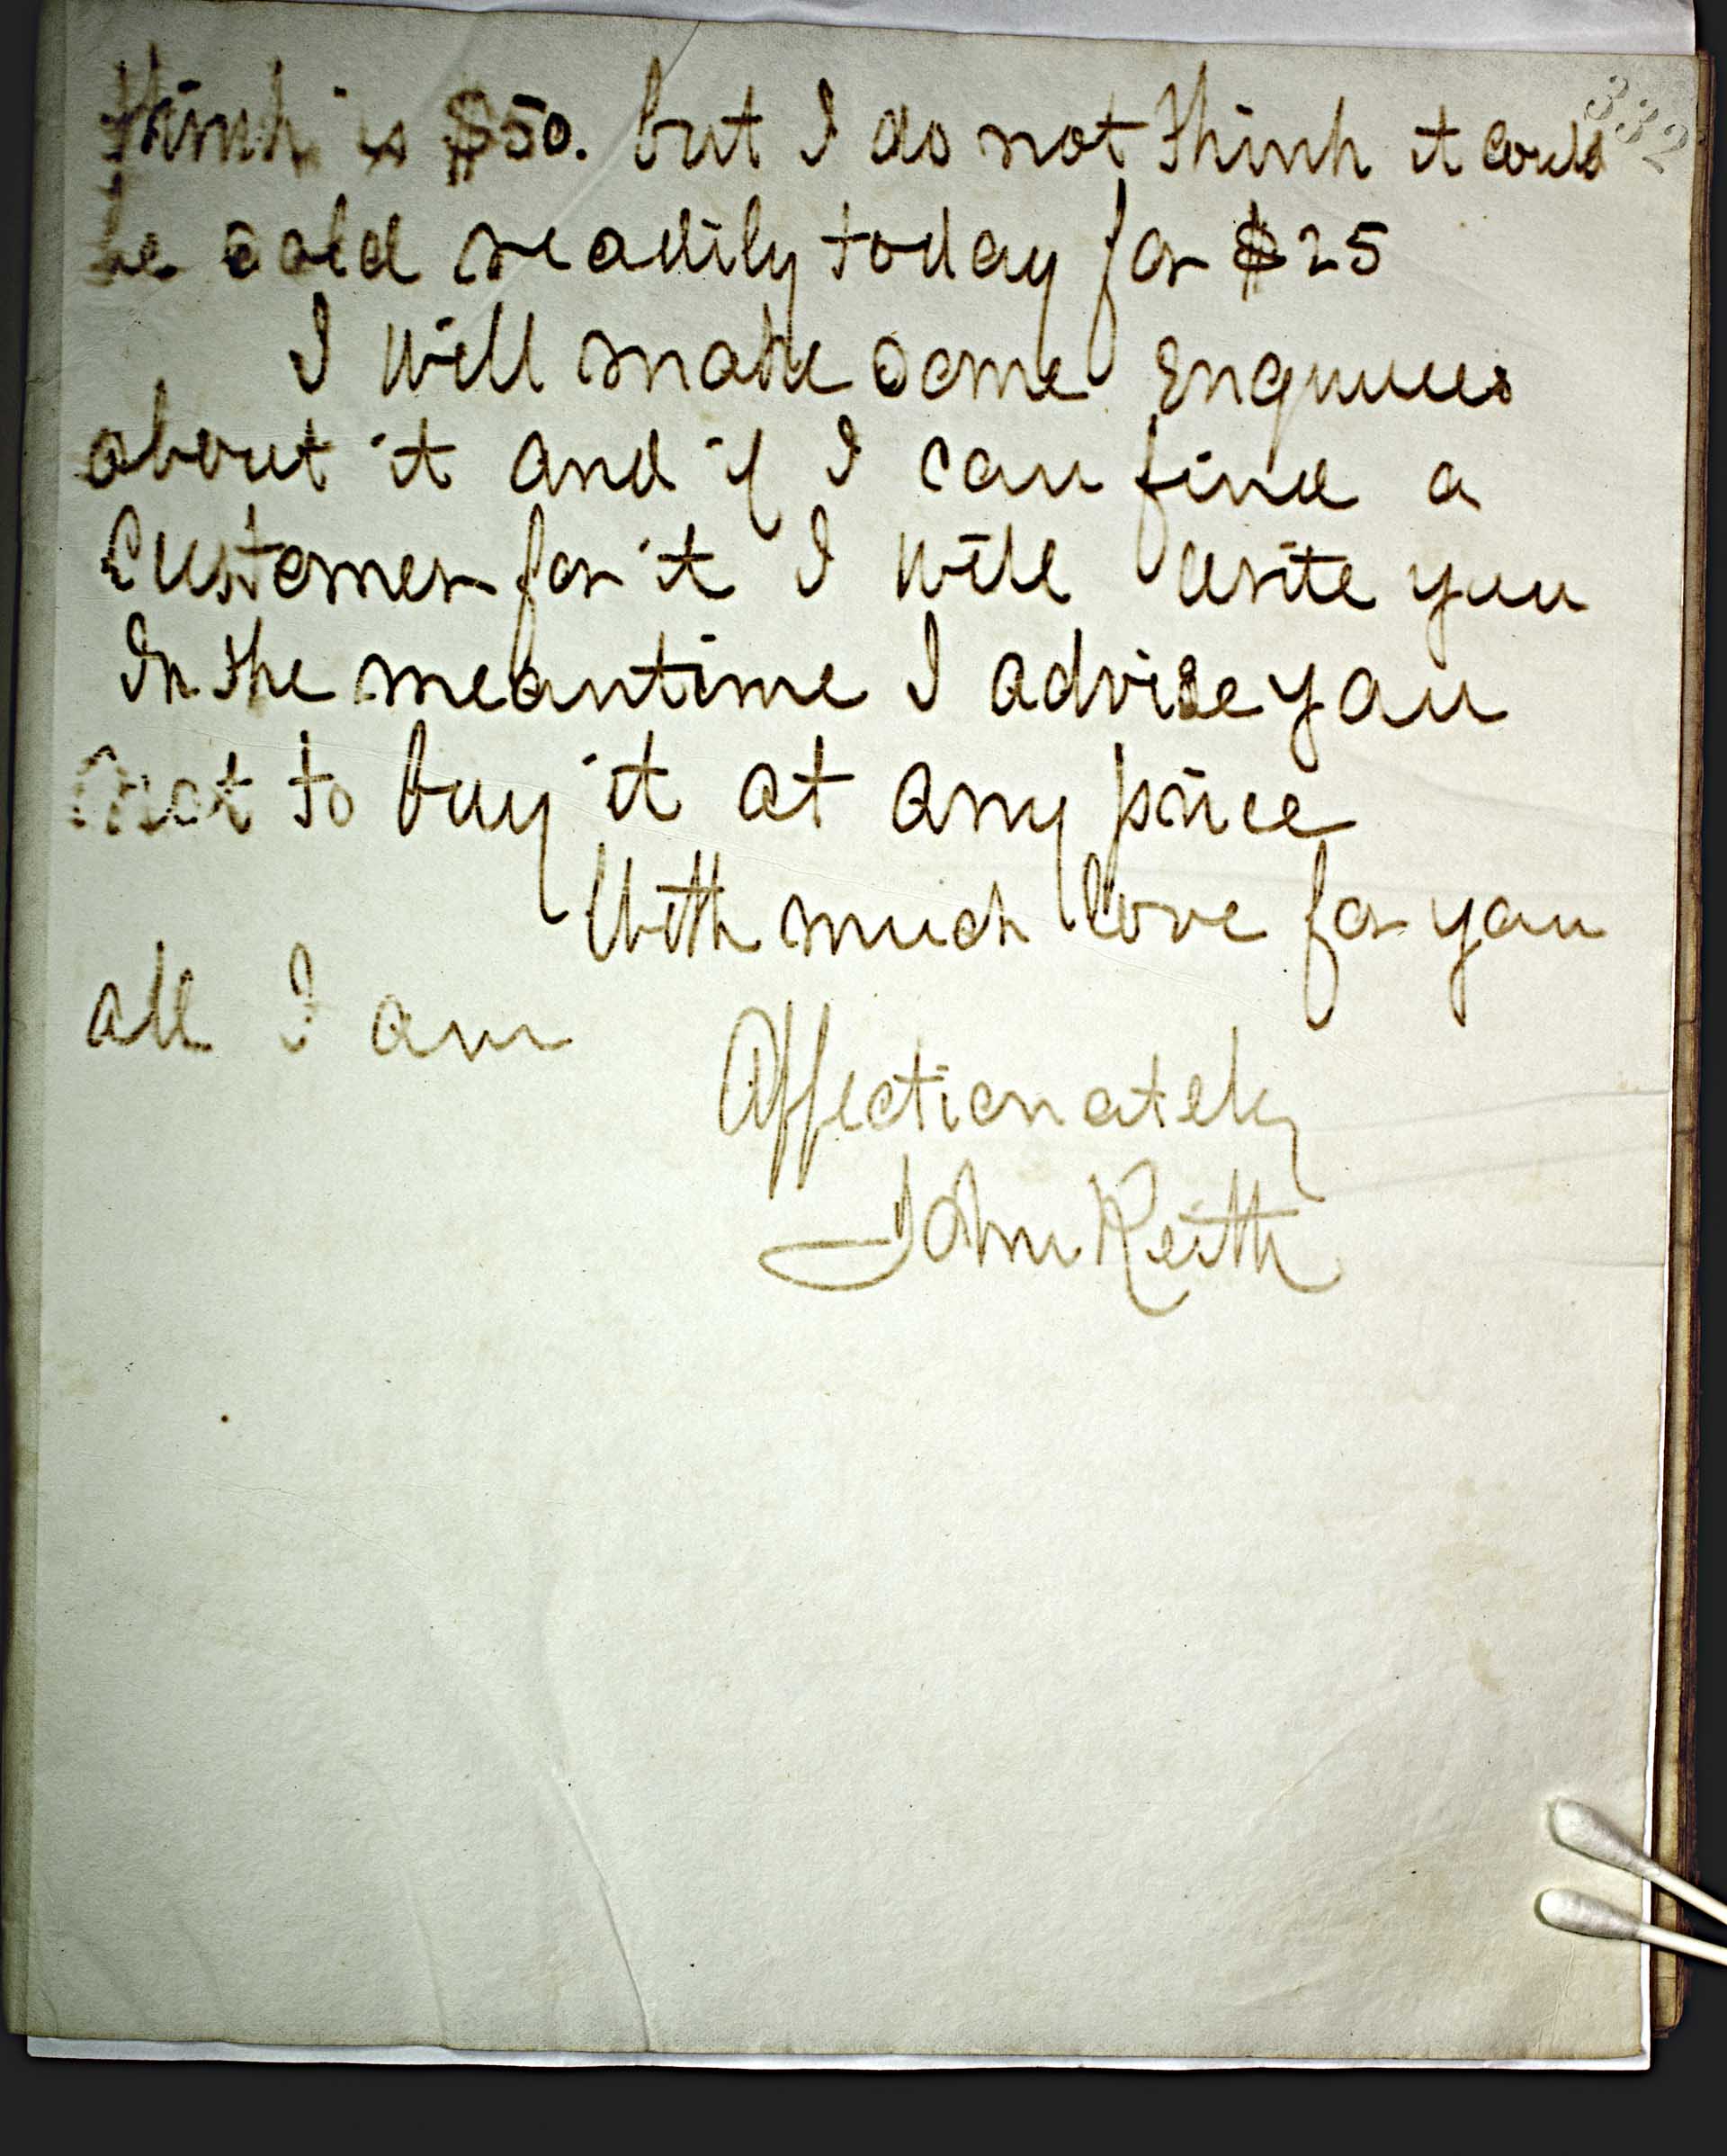 332
think is $50. but I do not think it could
be sold readily today for $25
I will make some Enquiries
about it and if I can find a
Customer for it I will write you
In the meantime I advise you
not to buy it at any price
With much love for you
all I am
Affectionately
John Keith